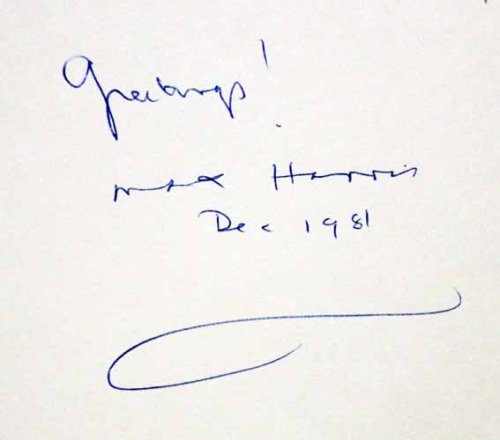 Greetings!
Max Harris
Dec 1981